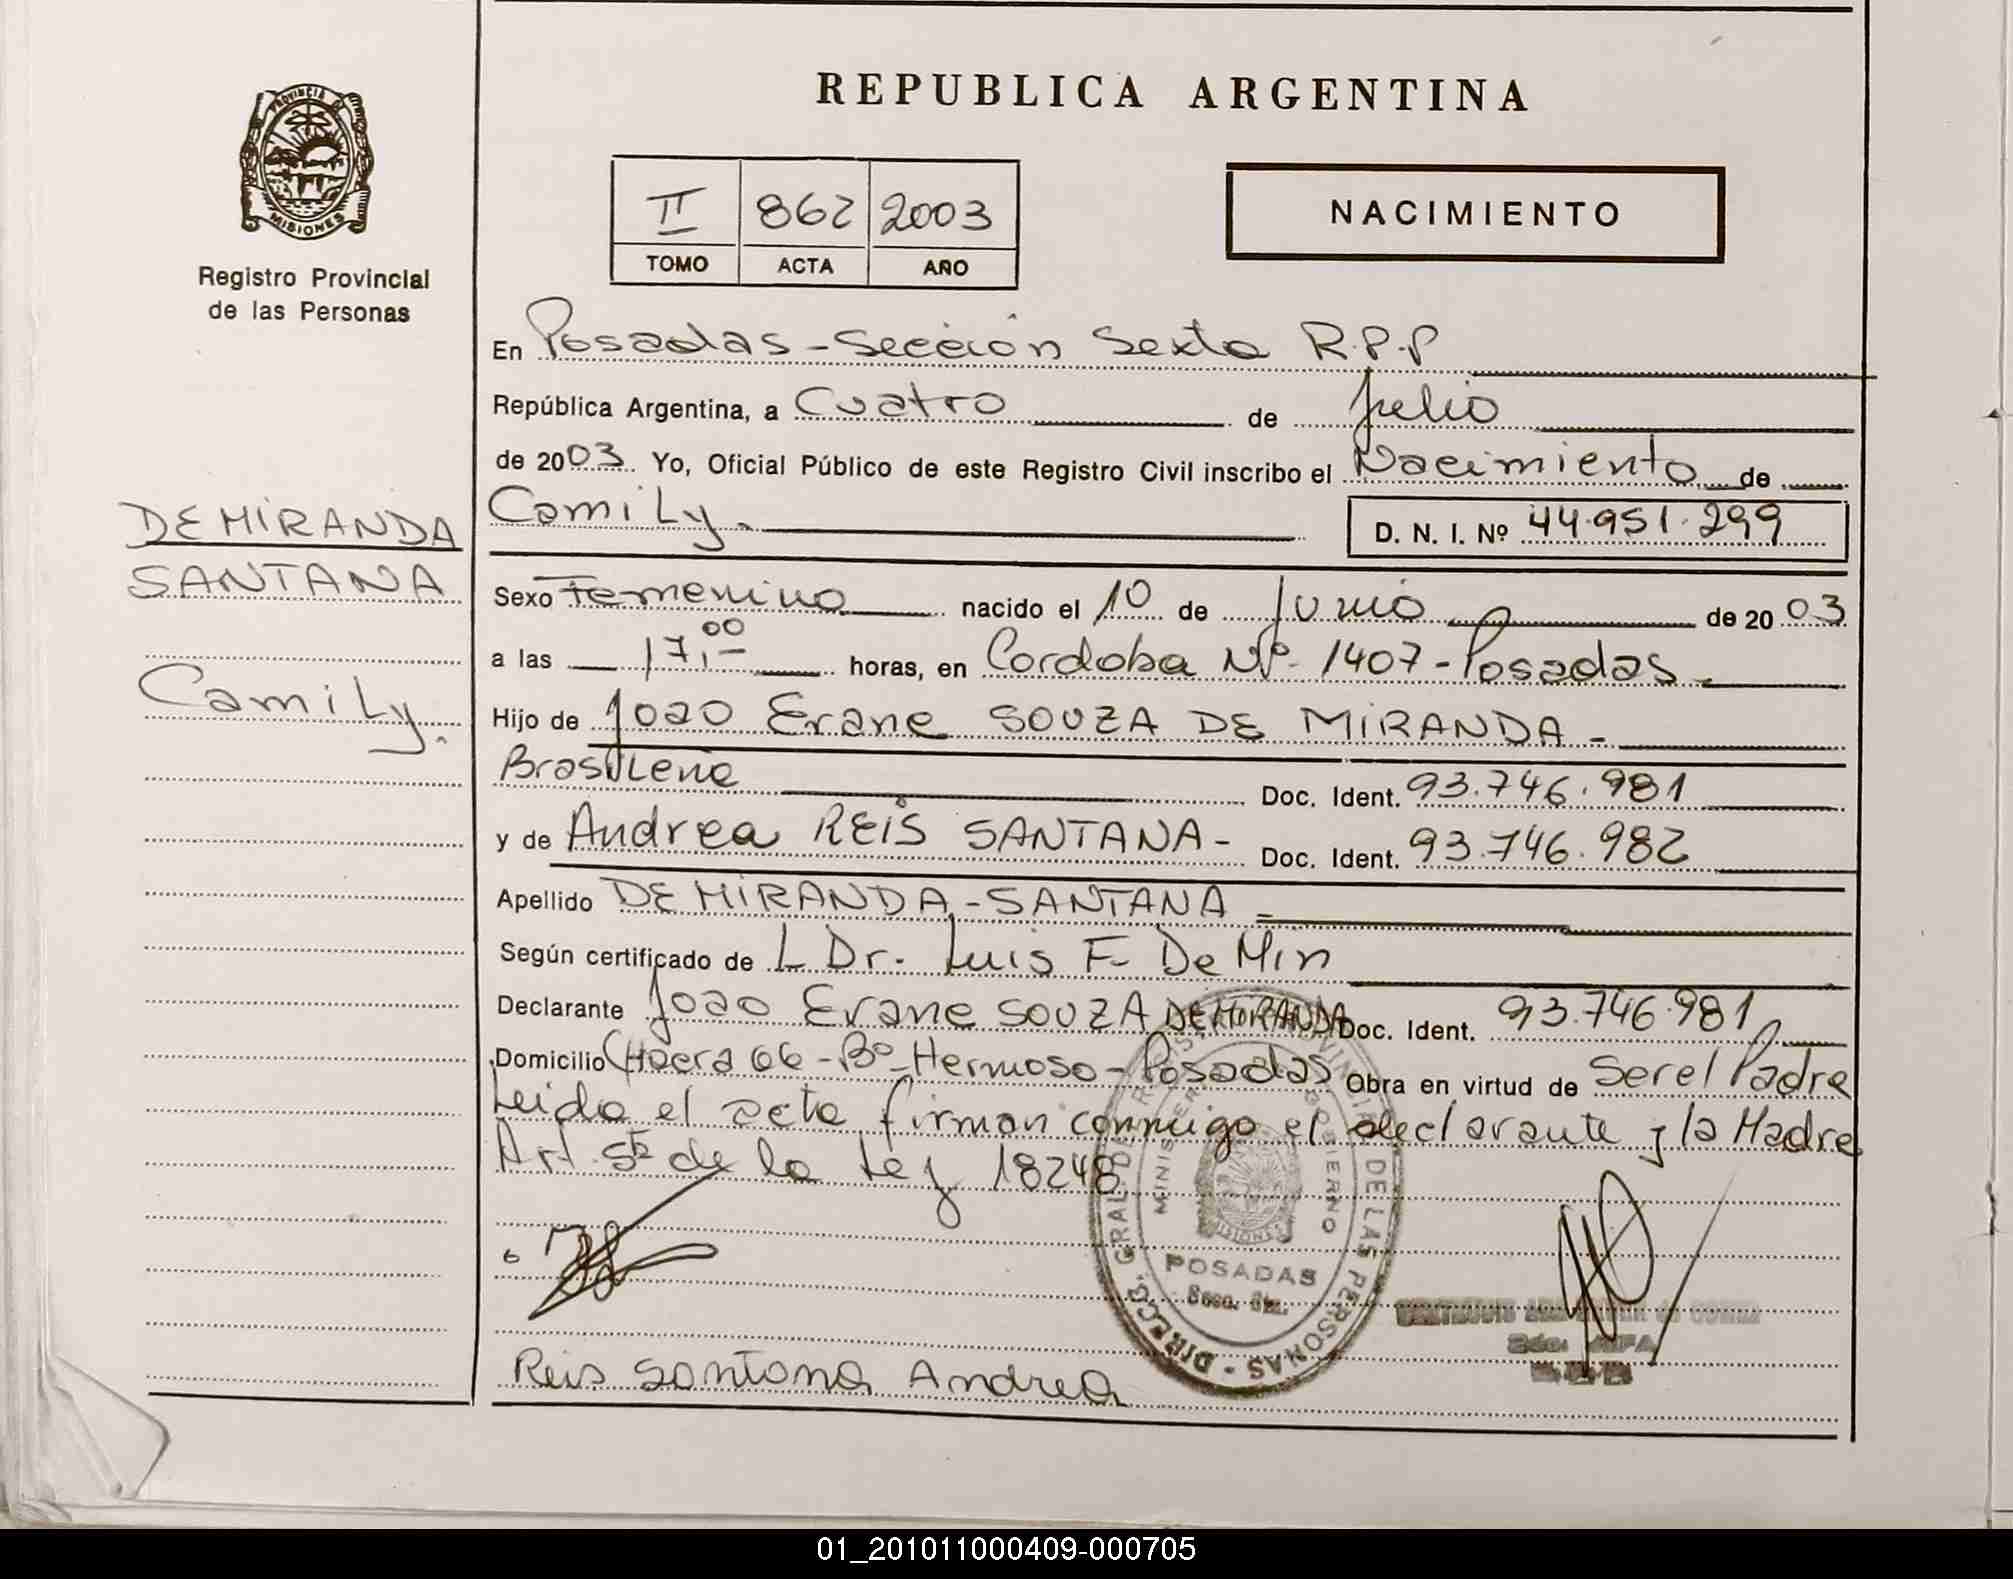 REPUBLICA ARGENTINA
PROVINCIA DE
MISIONES
Registro Provincial
de las Personas
II 862 2003
TOMO ACTA AÑO
NACIMIENTO
En Posadas - Sección Sexta R.P.P
República Argentina, a Cuatro de Julio
de 2003. Yo, Oficial Público de este Registro Civil inscribo el Nacimiento de
Camily. D. N. I. Nº 44.951.299
DE MIRANDA
SANTANA
Camily.
Sexo Femenino nacido el 10 de Junio de 2003
a las 17,00 horas, en Cordoba Nº 1407 - Posadas
Hijo de Joao Erane SOUZA DE MIRANDA -
Brasileña Doc. Ident. 93.746.981
y de Andrea REIS SANTANA - Doc. Ident. 93.746.982
Apellido DE MIRANDA - SANTANA -
Según certificado de L Dr. Luis F. De Min
Declarante Joao Erane SOUZA DE MIRANDA Doc. Ident. 93.746.981
Domicilio Chacra 66 - Bº Hermoso - Posadas Obra en virtud de Ser el Padre
Leida el acta firman conmigo el declarante y la Madre
Art. 5to de la Ley 18248
DIRECC. GRAL. DEL REGIST. PROVINCIAL DE LAS PERSONAS -
MINISTERIO GOBIERNO
MISIONES
POSADAS
Secc. 6ta.
Reis Santana Andrea
01_201011000409-000705